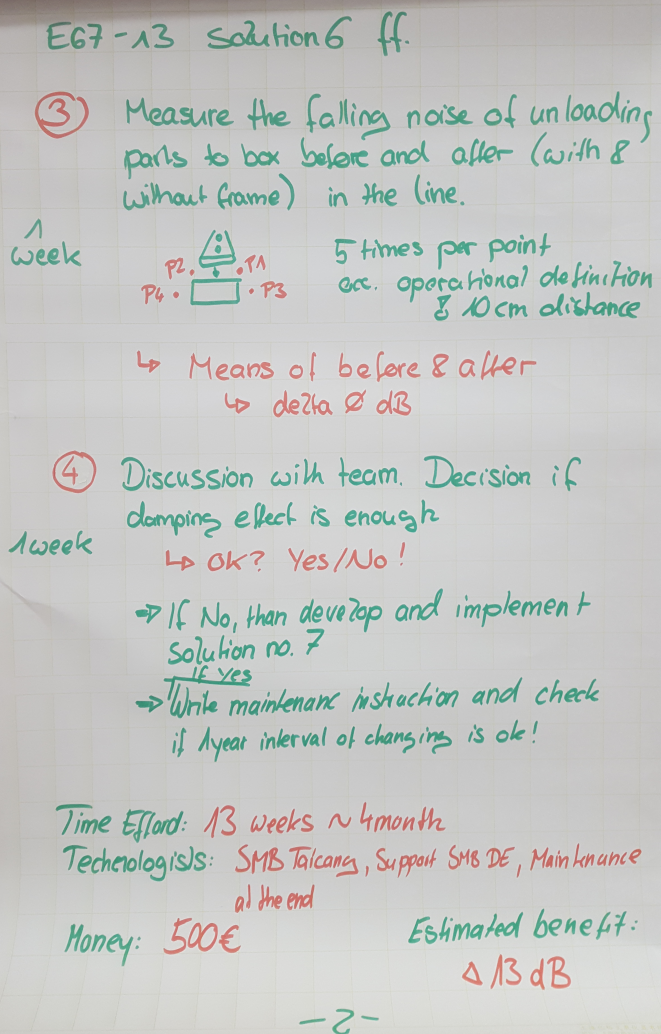 E67-13 Solution 6 ff.
③ Measure the falling noise of unloading
parts to box before and after (with &
without frame) in the line.
1
week
P2 P1
P4 P3
5 times per point
acc. operational definition
& 10cm distance
↳ Means of before & after
↳ delta Ø dB
④ Discussion with team. Decision if
damping effect is enough
1 week
↳ OK? Yes/No!
⇒ If No, than develop and implement
Solution no. 7
if yes
⇒ Write maintenanc instruction and check
if 1year interval of changing is ok!
Time Efford: 13 weeks ~ 4month
Technologists: SMB Taicang, Support SMB DE, Maintenance
at the end
Money: 500€
Estimated benefit:
Δ 13 dB
-2-